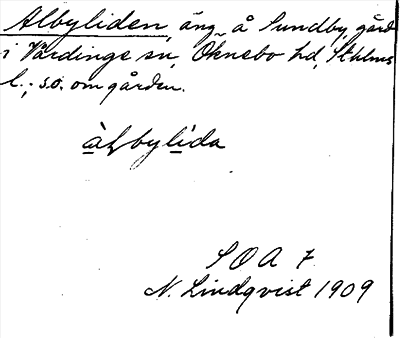 Albyliden, äng å Sundby gård
i Vårdinge sn, Öknebo hd, Sthlms
l.; s.o. om gården.
àlbylìda
S O A 7.
N. Lindqvist 1909